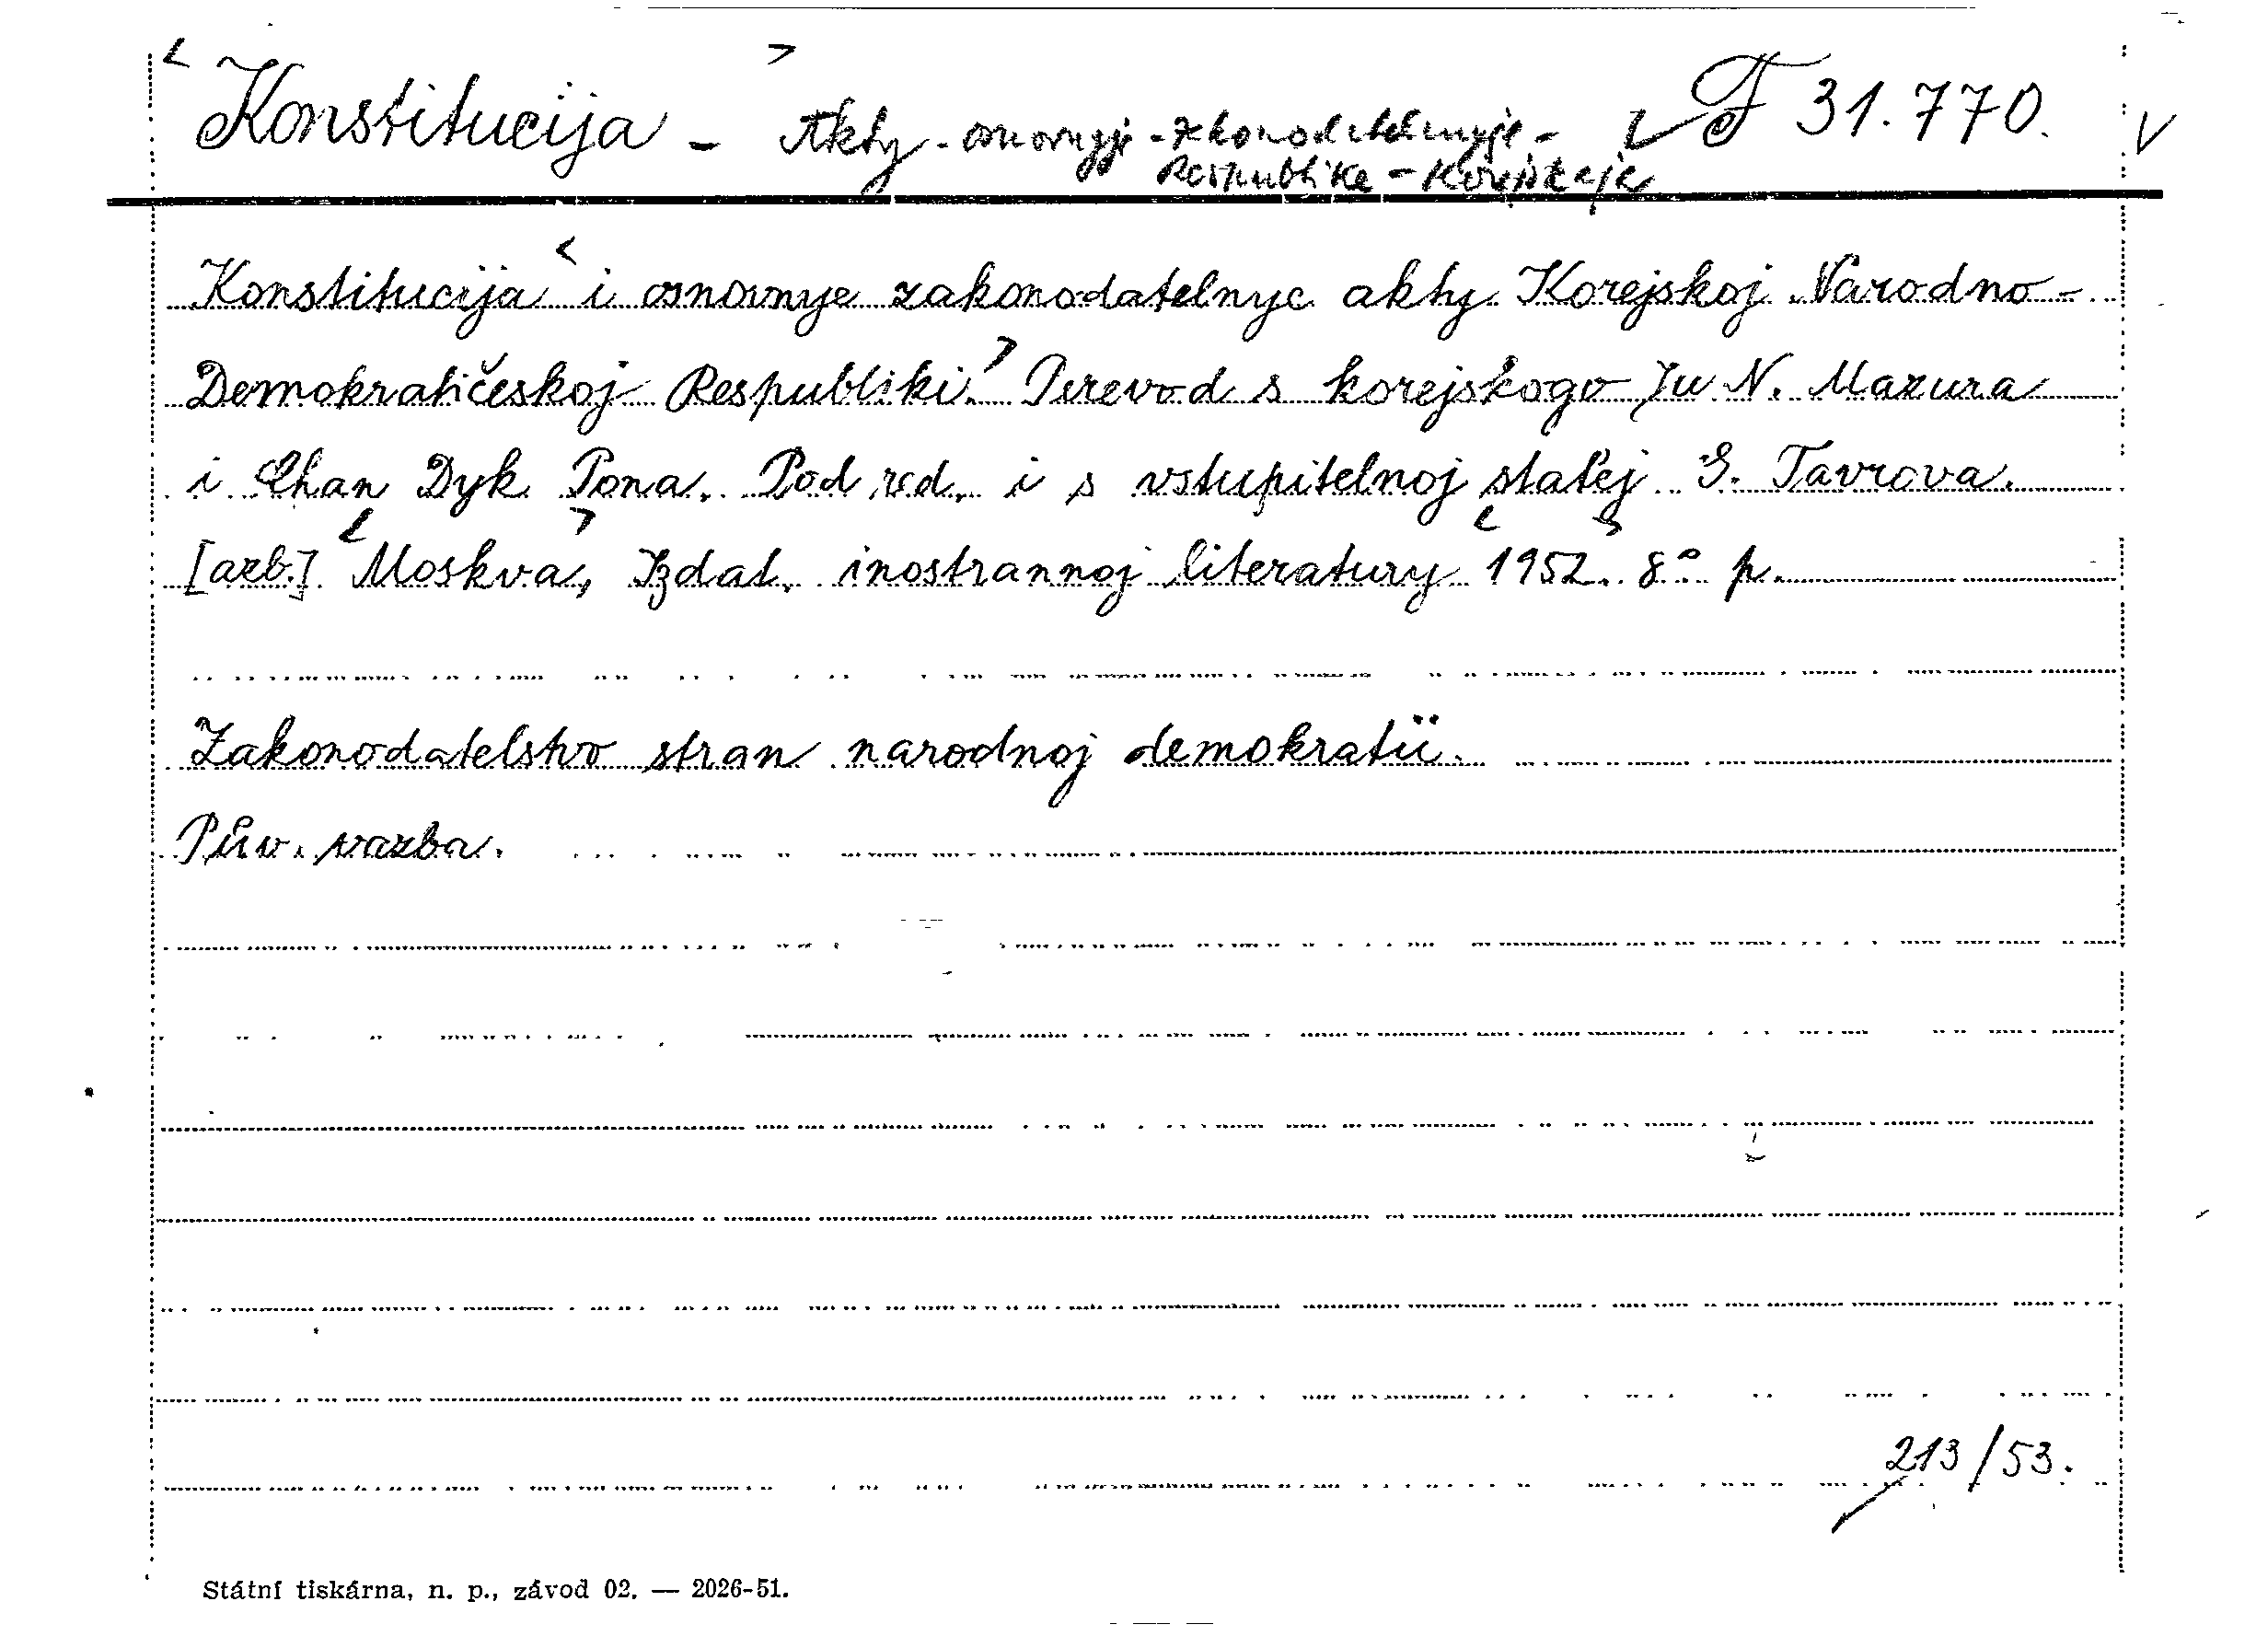 Konstitucija - Akty - osnovnyje - zakonodatelnyje - F 31.770.
Respublika - Korejskaja
Konstitucija i osnovnye zakonodatelnye akty Korejskoj Narodno-
Demokratičeskoj Respubliki. Perevod s korejskogo Ju N. Mazura
i Chan Dyk Pona. Pod red. i s vstupitelnoj statěj G. Tavrova.
[azb.] Moskva, Izdat. inostrannoj literatury 1952. 8° p.
Zakonodatelstvo stran narodnoj demokratii.
Pův. vazba.
213/53.
Státní tiskárna, n. p., závod 02. — 2026-51.